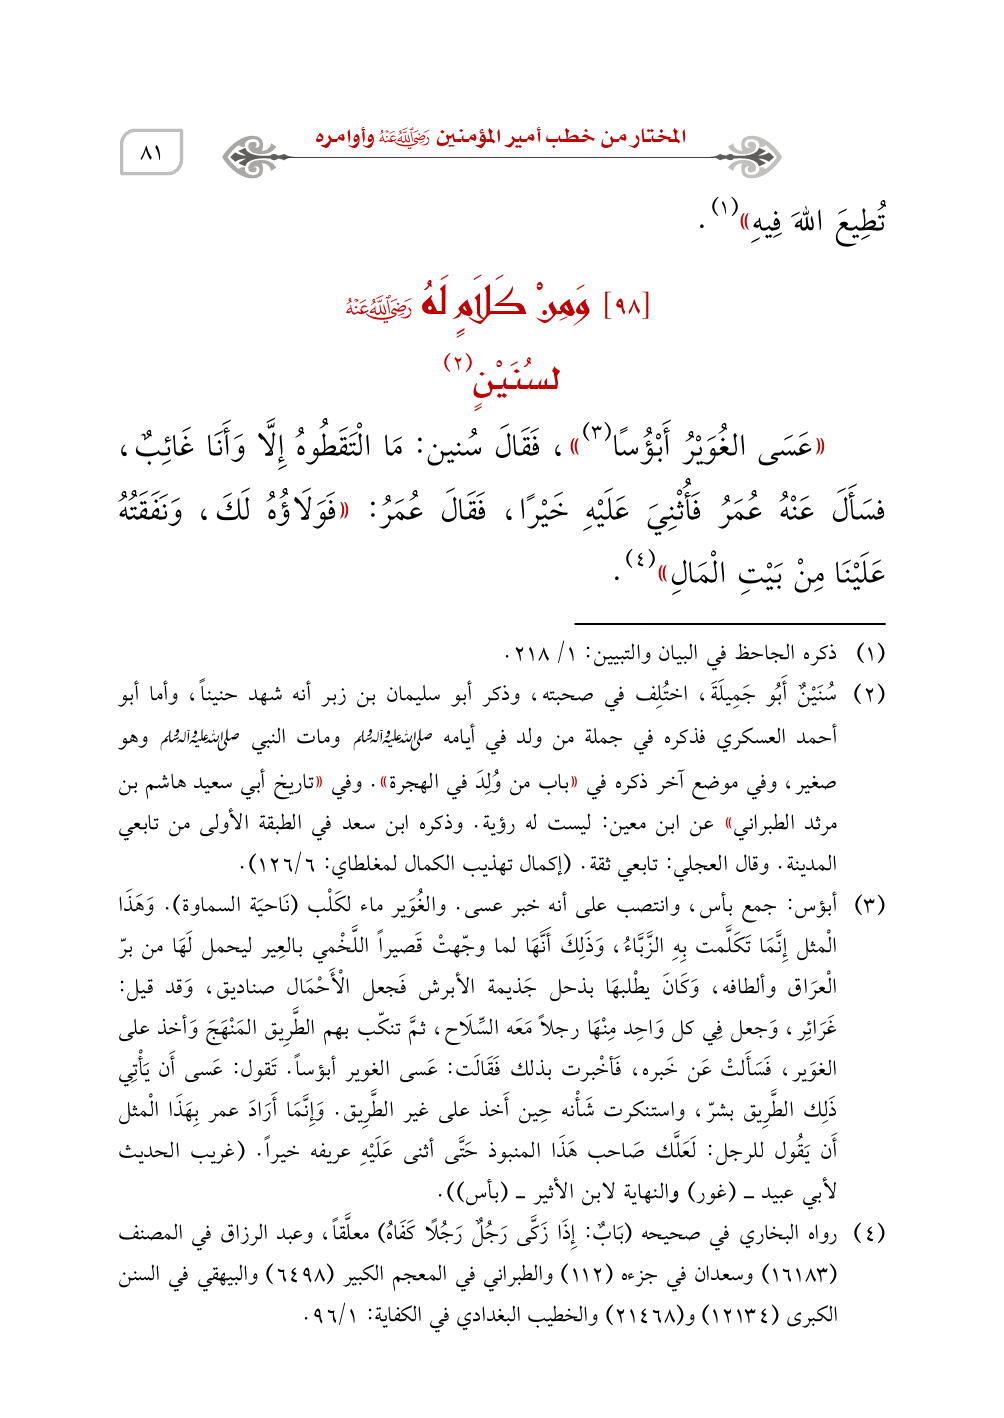 المختار من خطب أمير المؤمنين رَضِيَ اللَّهُ عَنْهُ وأوامره
٨١
تُطِيعَ اللهَ فِيهِ»(١).
[٩٨] وَمِنْ كَلَامٍ لَهُ رَضِيَ اللَّهُ عَنْهُ
لسُنَيْنٍ(٢)
«عَسَى الغُوَيْرُ أَبْؤُسًا(٣)»، فَقَالَ سُنين: مَا الْتَقَطُوهُ إِلَّا وَأَنَا غَائِبٌ،
فسَأَلَ عَنْهُ عُمَرُ فَأُثْنِيَ عَلَيْهِ خَيْرًا، فَقَالَ عُمَرُ: «فَوَلَاؤُهُ لَكَ، وَنَفَقَتُهُ
عَلَيْنَا مِنْ بَيْتِ الْمَالِ»(٤).
(١) ذكره الجاحظ في البيان والتبيين: ١/ ٢١٨.
(٢) سُنَيْنٌ أَبُو جَمِيلَةَ، اختُلِف في صحبته، وذكر أبو سليمان بن زبر أنه شهد حنيناً، وأما أبو
أحمد العسكري فذكره في جملة من ولد في أيامه صلى الله عليه وآله وسلم ومات النبي صلى الله عليه وآله وسلم وهو
صغير، وفي موضع آخر ذكره في «باب من وُلِدَ في الهجرة». وفي «تاريخ أبي سعيد هاشم بن
مرثد الطبراني» عن ابن معين: ليست له رؤية. وذكره ابن سعد في الطبقة الأولى من تابعي
المدينة. وقال العجلي: تابعي ثقة. (إكمال تهذيب الكمال لمغلطاي: ١٢٦/٦).
(٣) أبؤس: جمع بأس، وانتصب على أنه خبر عسى. والغُوَير ماء لكَلْب (نَاحيَة السماوة). وَهَذَا
الْمثل إِنَّمَا تَكَلَّمت بِهِ الزَّبَّاءُ، وَذَلِكَ أَنَّهَا لما وجّهتْ قَصيراً اللَّخْمي بالعِير ليحمل لَهَا من برّ
الْعرَاق وألطافه، وَكَانَ يطْلبهَا بذحل جَذيمة الأبرش فَجعل الْأَحْمَال صناديق، وَقد قيل:
غَرَائِر، وَجعل فِي كل وَاحِد مِنْهَا رجلاً مَعَه السِّلَاح، ثمَّ تنكّب بهم الطَّرِيق المَنْهَجَ وَأخذ على
الغوَير، فَسَألتْ عَن خَبره، فَأخْبرت بذلك فَقَالَت: عَسى الغوير أبؤساً. تَقول: عَسى أَن يَأْتِي
ذَلِك الطَّرِيق بشرّ، واستنكرت شَأْنه حِين أَخذ على غير الطَّرِيق. وَإِنَّمَا أَرَادَ عمر بِهَذَا الْمثل
أَن يَقُول للرجل: لَعَلَّك صَاحب هَذَا المنبوذ حَتَّى أثنى عَلَيْهِ عريفه خيراً. (غريب الحديث
لأبي عبيد ـ (غور) والنهاية لابن الأثير ـ (بأس)).
(٤) رواه البخاري في صحيحه (بَابٌ: إِذَا زَكَّى رَجُلٌ رَجُلًا كَفَاهُ) معلَّقاً، وعبد الرزاق في المصنف
(١٦١٨٣) وسعدان في جزءه (١١٢) والطبراني في المعجم الكبير (٦٤٩٨) والبيهقي في السنن
الكبرى (١٢١٣٤) و(٢١٤٦٨) والخطيب البغدادي في الكفاية: ٩٦/١.